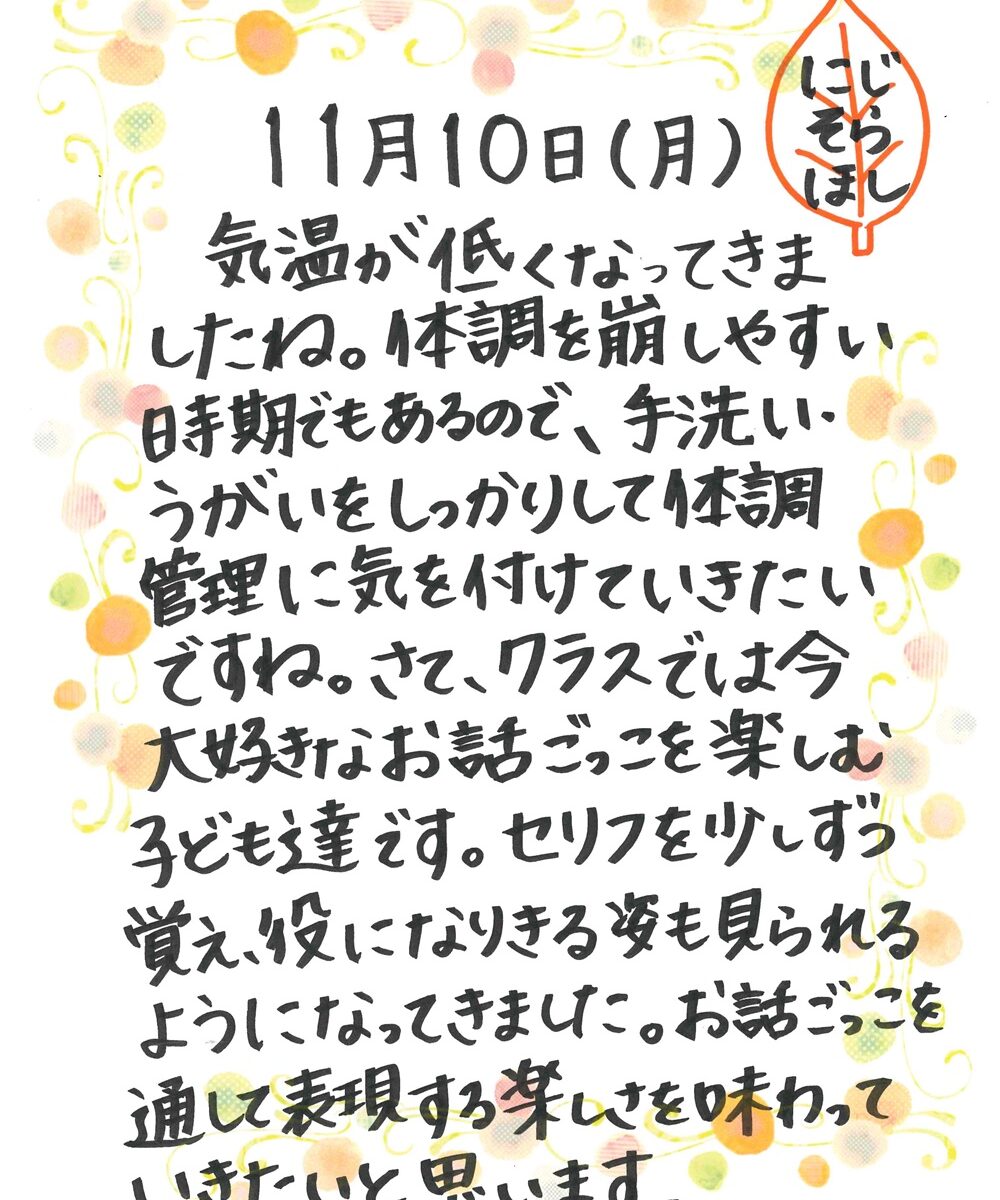 11月10日(月)
にじ
そら
ほし
気温が低くなってきま
したね。体調を崩しやすい
時期でもあるので、手洗い・
うがいをしっかりして体調
管理に気を付けていきたい
ですね。さて、クラスでは今
大好きなお話ごっこを楽しむ
子ども達です。セリフを少しずつ
覚え、役になりきる姿も見られる
ようになってきました。お話ごっこを
通して表現する楽しさを味わって
いきたいと思います。